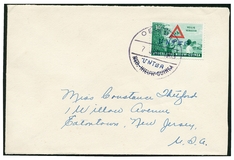 UNTEA
Miss Constance Thetford
1 Willow Avenue
Eatontown, New Jersey,
U.S.A.